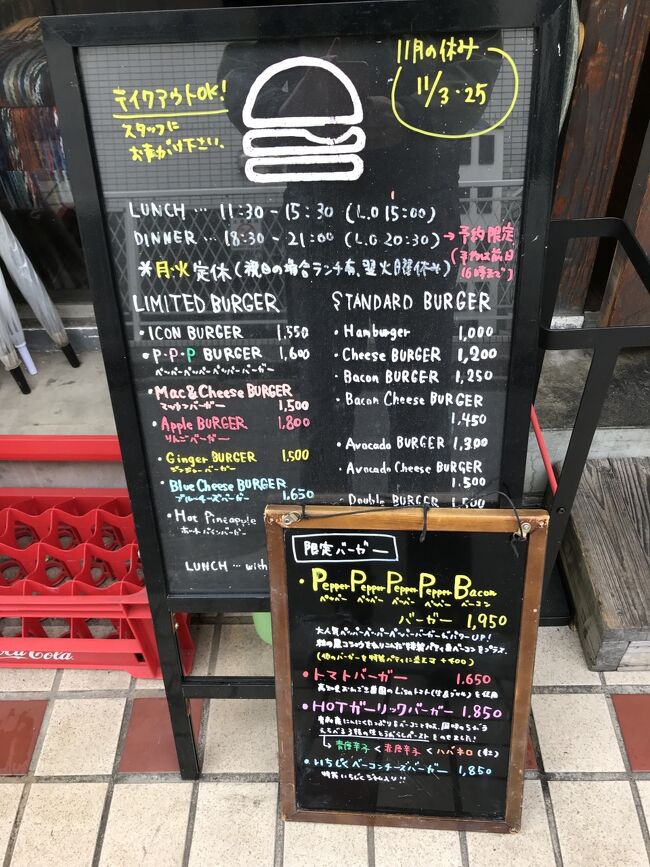 11月の休み
11/3・25
テイクアウトOK!
スタッフに
お声がけ下さい。
LUNCH … 11:30 - 15:30 (L.O 15:00)
DINNER … 18:30 - 21:00 (L.O 20:30) → 予約限定
(予約は前日
16時まで)
*月・火 定休 (祝日の場合ランチ有、翌火曜休み)
LIMITED BURGER
・ICON BURGER 1,550
・P・P・P BURGER 1,600
ペーパーペッパーペッパーバーガー
・Mac&Cheese BURGER
マッケンバーガー
1,500
・Apple BURGER 1,800
りんごバーガー
・Ginger BURGER 1,500
ジンジャーバーガー
・Blue Cheese BURGER
ブルーチーズバーガー 1,650
・Hot Pineapple
ホットパインバーガー
LUNCH … with
STANDARD BURGER
・Hamburger 1,000
・Cheese BURGER 1,200
・Bacon BURGER 1,250
・Bacon Cheese BURGER
1,450
・Avocado BURGER 1,300
・Avocado Cheese BURGER
1,500
・Double BURGER 1,500
限定バーガー
・Pepper Pepper Pepper Pepper Bacon
ペッパー ペッパー ペッパー ペッパー ベーコン
バーガー 1,950
大人気ペッパーペッパーペッパーバーガーがパワーUP!
(他のバーガーを特製パティに変更 +400)
・トマトバーガー 1,650
・HOTガーリックバーガー 1,850
えらべる3種の生とうがらしペーストをのせました!
→ 青唐辛子 < 赤唐辛子 < ハバネロ (红)
・いちじくベーコンチーズバーガー 1,850
Coca-Cola